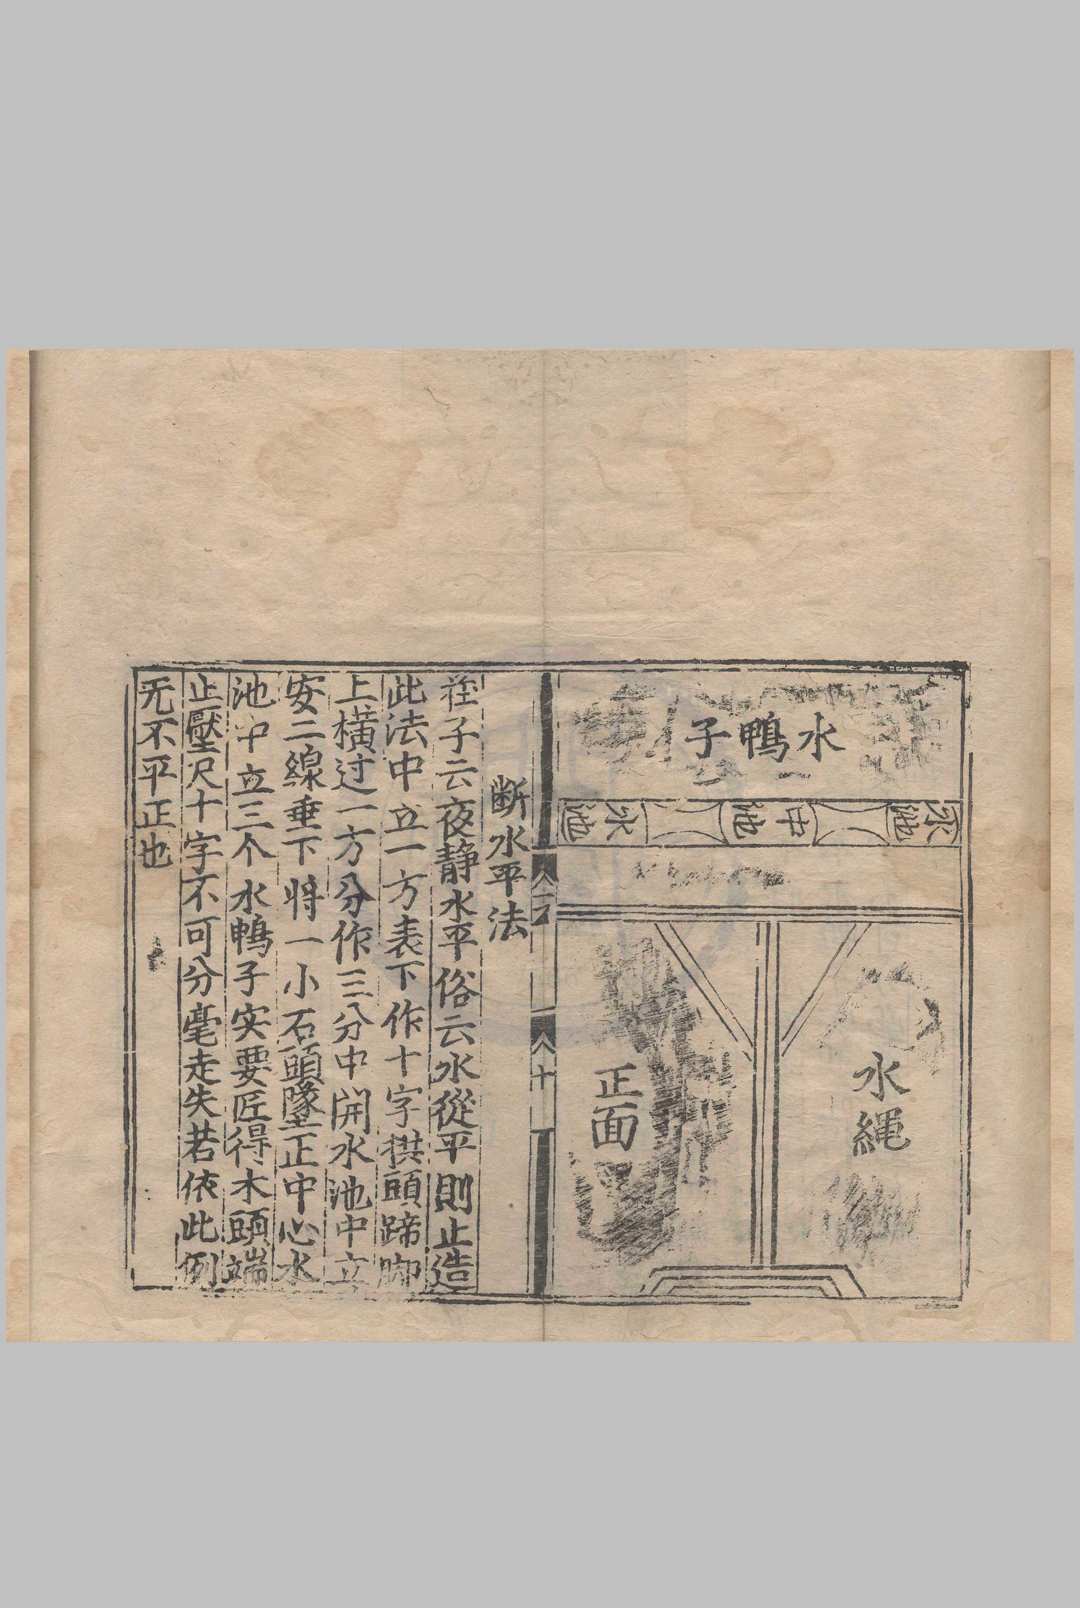 水鴨子
水池
中池
水池
水繩
正面
断水平法
莊子云夜静水平俗云水從平則止造
此法中立一方表下作十字拱頭蹄脚
上横过一方分作三分中開水池中立
安二線垂下将一小石頭墜正中心水
池中立三个水鴨子实要匠得木頭端
止壓尺十字不可分毫走失若依此例
无不平正也